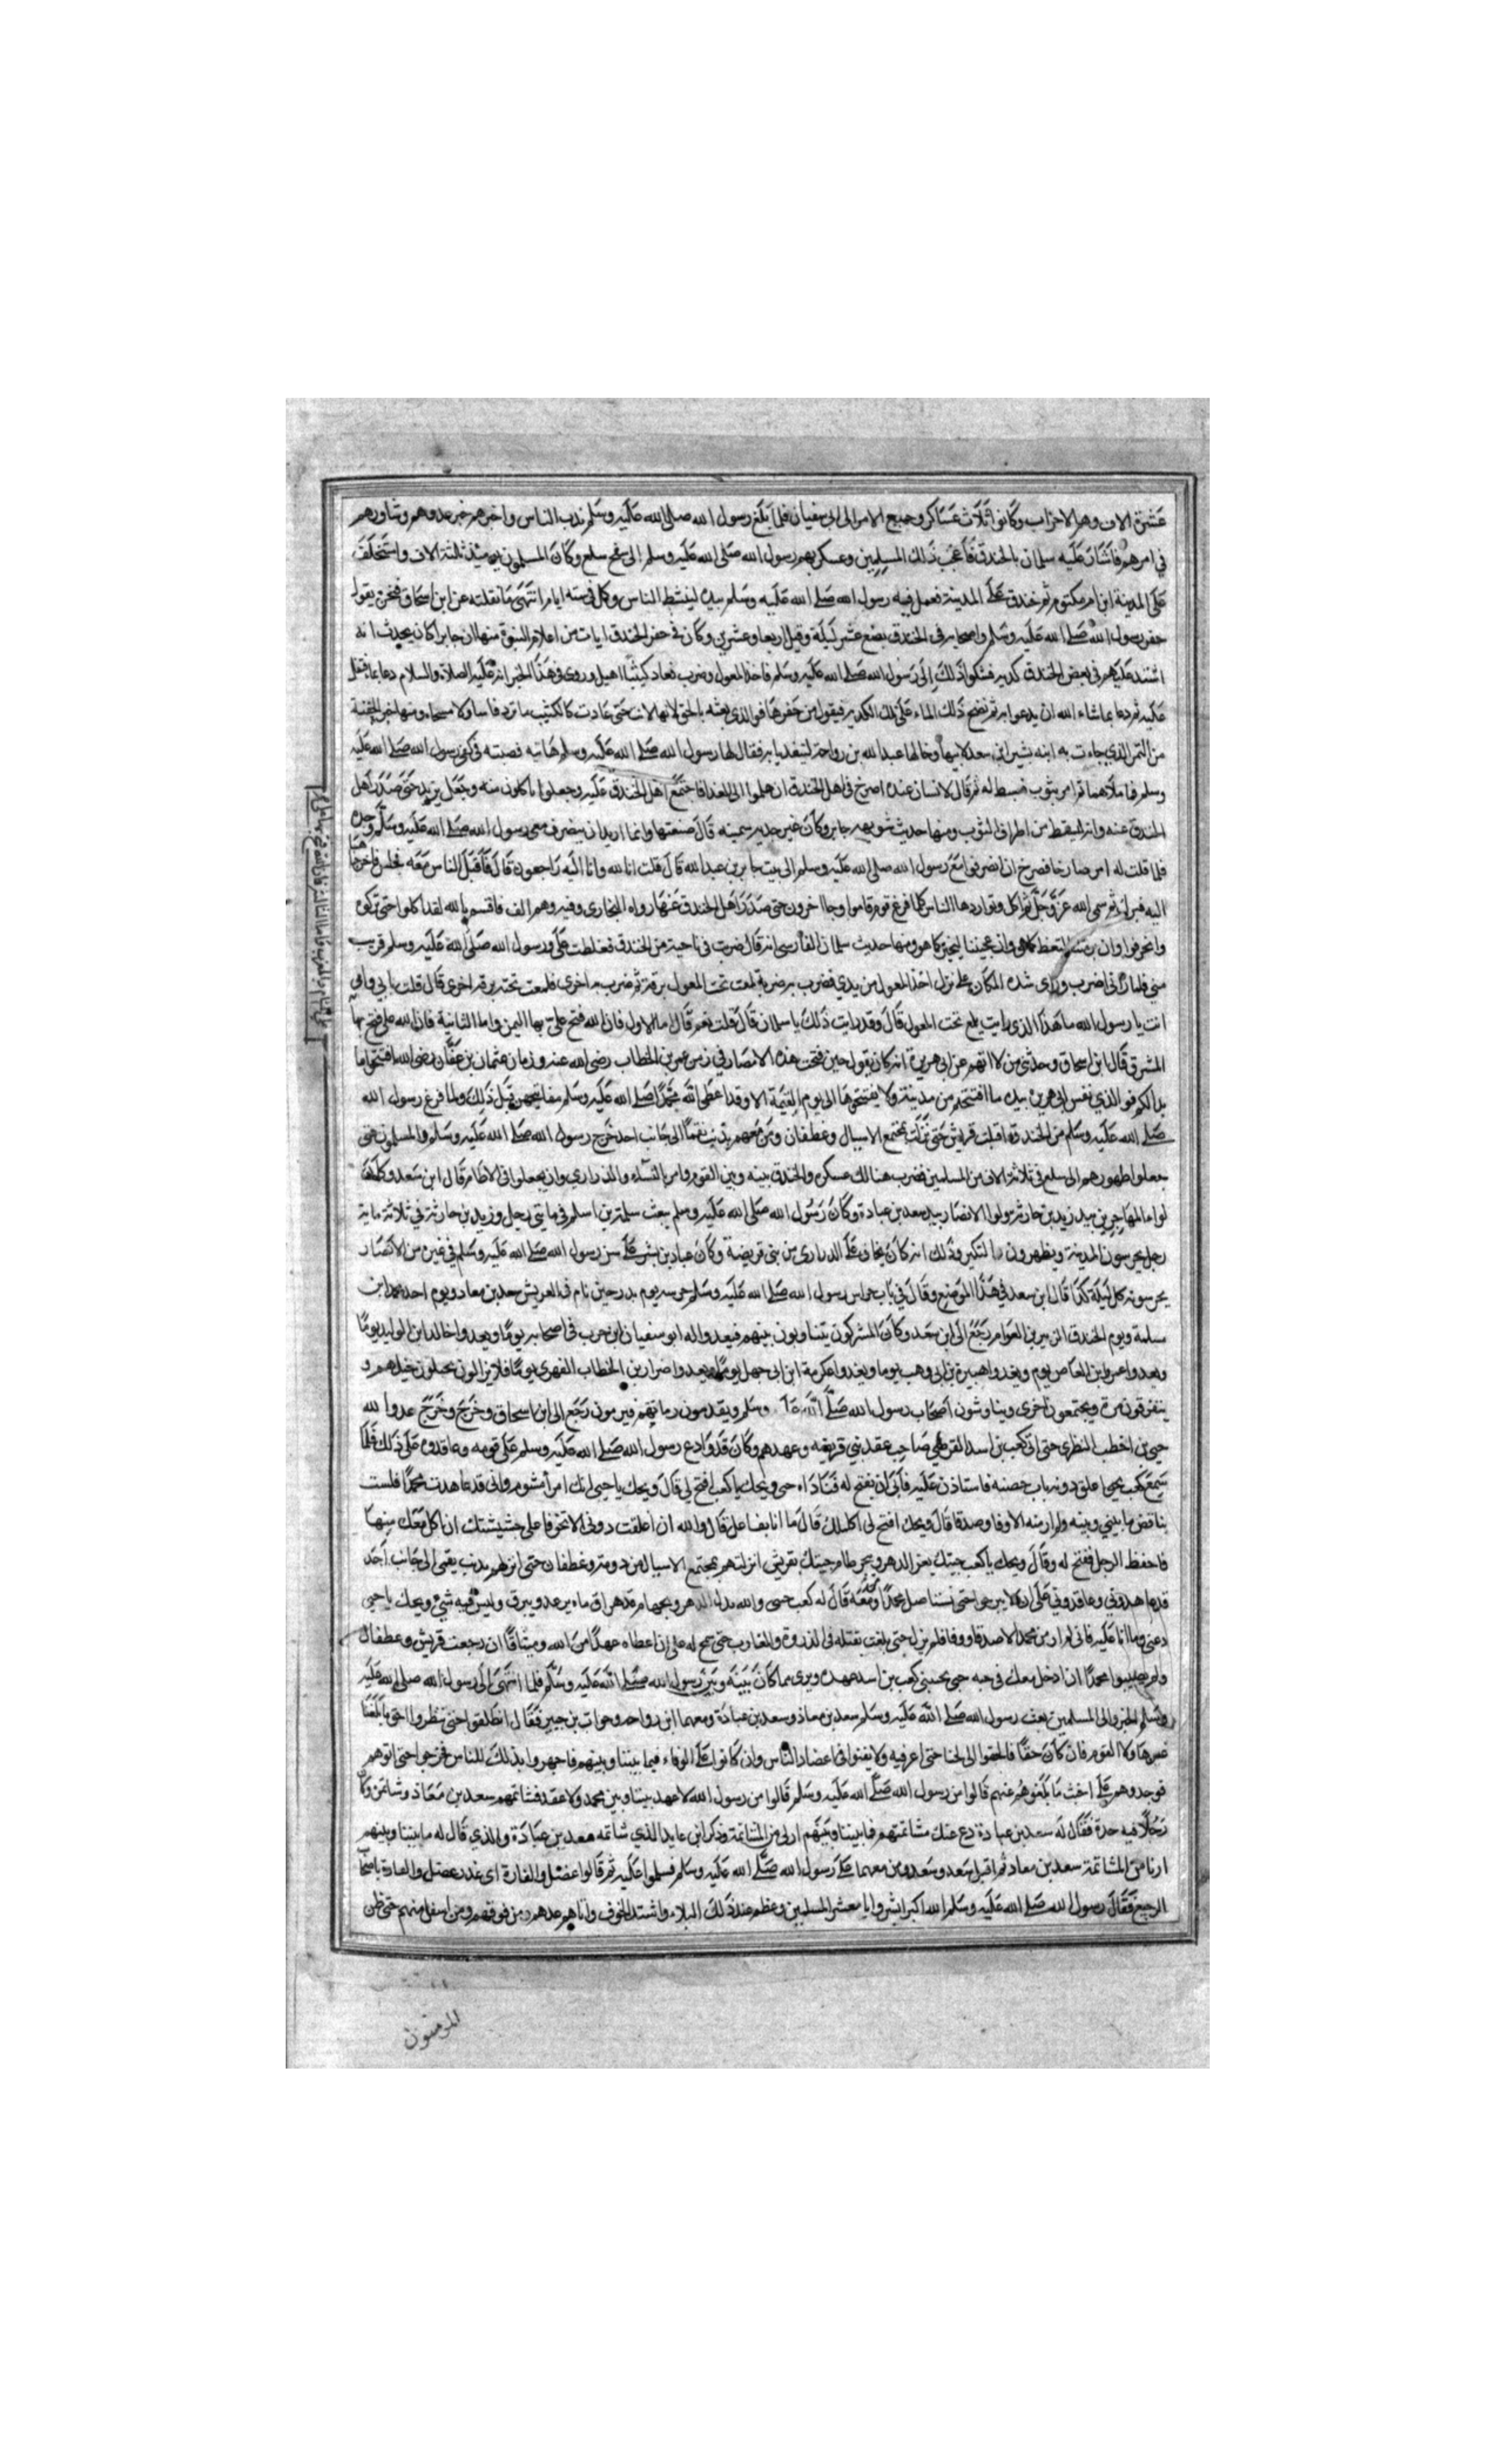 عشرة الاف وهم الاحزاب وكانوا ثلاث عساكر وجميع الامر الى ابى سفيان فلما بلغ رسول الله صلى الله عليه وسلم ندب الناس واخبرهم خبر عدوهم وشاورهم
في امرهم فاشار عليه سلمان بالخندق فاعجب ذلك المسلمين وعسكر بهم رسول الله صلى الله عليه وسلم الى سفح سلع وكان المسلمون يوميذ ثلثة الاف واستخلف
على المدينة ابن ام مكتوم ثم خندق على المدينة فعمل فيه رسول الله صلى الله عليه وسلم بيده لينشط الناس وكمل في سته ايام انتهى ما نقلته عن ابن اسحاق فنحن نقول
حفر رسول الله صلى الله عليه وسلم واصحابه في الخندق بضع عشر ليلة وقيل اربعا وعشرين وكان في حفر الخندق ايات من اعلام النبوة منها ان جابرا كان يحدث انه
اشتد عليهم في بعض الخندق كدية فشكوا ذلك الى رسول الله صلى الله عليه وسلم فاخذ المعول وضرب فعاد كثيبا اهيل وروى في هذا الخبر انه عليه الصلاة والسلام دعا بما فتفل
عليه ثم دعا بما شاء الله ان يدعوا به ثم نضح ذلك الماء على تلك الكدية فيقول من حضرها فوالذي بعثه بالحق لانهالت حتى عادت كالكثيب ما ترد فاسا ولا مسحاه ومنها خبر الحفنة
من التمر الذي جاءت به ابنه بشير ابن سعد لابيها وخالها عبد الله بن رواحة ليتغديا به فقال لها رسول الله صلى الله عليه وسلم هاتيه فصبته في كفى رسول الله صلى الله عليه
وسلم فما ملاهما ثم امر بثوب فبسط له ثم قال لانسان عنده اصرخ في اهل الخندق ان هلموا الى الغدا فاجتمع اهل الخندق عليه وجعلوا ياكلون منه وجعل يزيد حتى صدر اهل
الخندق عنه وانه ليسقط من اطراف الثوب ومنها حديث شويهة جابر وكان غير جد سمينه قال صنعتها وانما اريد ان ينصرف معى رسول الله صلى الله عليه وسلم وحده
فلما قلت له امر صارخا فصرخ ان انصرفوا مع رسول الله صلى الله عليه وسلم الى بيت جابر بن عبد الله قال قلت انا لله وانا اليه راجعون قال فاقبل الناس معه فجلس فاخرجناها
اليه فبرك ثم سمى الله عز وجل ثم اكل وتواردها الناس كلما فرغ قوم قاموا وجا اخرون حتى صدر اهل الخندق عنها رواه البخارى وفيه وهم الف فاقسم بالله لقد اكلوا حتى تركوه
وانحرفوا وان برمتنا لتغط كما هي وان عجيننا ليخبز كما هو ومنها حديث سلمان الفارسى انه قال ضربت في ناحية من الخندق فغلظت على ورسول الله صلى الله عليه وسلم قريب
مني فلما راني اضرب وراى شدة المكان على نزل اخذ المعول من يدي فضرب به ضربة لمعت تحت المعول برقة ثم ضرب به اخرى فلمعت تحته برقة اخرى قال قلت بابي وامى
انت يا رسول الله ما هذا الذى رايت يلمع تحت المعول قال وقد رايت ذلك يا سلمان قال قلت نعم قال اما الاول فان الله فتح على بها اليمن واما الثانية فان الله على فتح بها
المشرق قال ابن اسحاق وحدثني من لا اتهم عن ابى هريرة انه كان يقول حين فتحت هذه الامصار في زمن عمر بن الخطاب رضى الله عنه وزمان عثمان بن عفان رضى الله افتتحوا ما
بدا لكم فو الذي نفس ابى هريرة بيده ما افتتحتم من مدينة ولا يفتتحوها الى يوم القيمة الا وقد اعطى الله محمدا صلى الله عليه وسلم مفاتيحهن قبل ذلك ولما فرغ رسول الله
صلى الله عليه وسلم من الخندق اقبلت قريش حتى نزلت بمجتمع الاسيال وغطفان ومن معهم بذنب نقما الى جانب احد خرج رسول الله صلى الله عليه وسلم والمسلمون حتى
جعلوا ظهورهم الى سلع في ثلاثة الاف من المسلمين فضرب هنالك عسكره والخندق بينه وبين القوم وامر بالنساء والذراري وان يجعلوا في الاطام قال ابن سعد وكان
لواء المهاجرين بيد زيد بن حارثة ولواء الانصار بيد سعد بن عبادة وكان رسول الله صلى الله عليه وسلم يبعث سلمة بن اسلم في مايتى رجل وزيد بن حارثة في ثلاثة ماية
رجل يحرسون المدينة ويظهرون التكبير وذلك انه كان يخاف على الدراري من بنى قريضة وكان عباد بن بشر على حرس رسول الله صلى الله عليه وسلم في غيره من الانصار
يحرسونه كل ليلة كذا قال ابن سعد في هذا الموضع وقال في باب حراس رسول الله صلى الله عليه وسلم حرسه يوم بدر حين نام في العريش سعد بن معاد ويوم احد محمد ابن
سلمة ويوم الخندق الزبير بن العوام رجع الى ابن سعد وكان المشركون يتناوبون بينهم فيعدوا ابو سفيان ابن حرب في اصحابه يوما ويعدوا خالد ابن الوليد يوما
ويعدوا عمرو ابن العاص يوم ويغدوا هبيرة بن ابى وهب يوما ويغدوا عكرمة ابن ابى جهل يوما ويعدوا ضرار بن الخطاب الفهرى يوما فلا يزالون يجيلون خيلهم و
يتفرقون مرة ويجتمعون اخرى ويناوشون اصحاب رسول الله صلى الله وسلم ويقدمون رماتهم فيرمون رجع الى ابن اسحاق وخرج وخرج عدوا لله
حيى بن اخطب النظرى حتى اتى كعب بن اسد القرظي صاحب عقد بني قريضه وعهدهم وكان قد وادع رسول الله صلى الله عليه وسلم على قومه وعاقده على ذلك فلما
سمع كعب بحيى اغلق دونه باب حصنه فاستاذن عليه فابى ان يفتح له فناداه حيى ويحك يا كعب افتح لي قال ويحك يا حيى انك امرأ مشوم وانى قد عاهدت محمدا فلست
بناقض ما بيني وبينه ولم ار منه الا وفا وصدقا قال ويحك افتح لى اكلمك قال ما انا بفاعل قال والله ان اغلقت دونى الا تخوفا على جشيشتك ان اكل معك منها
فاحفظ الرجل ففتح له وقال ويحك يا كعب جيتك بعز الدهر وبحر طام جيتك بقريش انزلتهم بمجتمع الاسيال من دومة وغطفان حتى انزلهم بدنب نقمى الى جانب احد
قد عاهدوني وعاقدوني على ان لا يبرحوا حتى نستاصل محمدا ومن معه قال له كعب جيتنى والله بدل الدهر وبجهام قد هراق ماءه يرعد ويبرق وليس فيه شيء ويحك يا حيى
دعنى وما انا عليه فانى لم ار من محمد الا صدقا ووفا فلم يزل حتى بلغت بفتله في الذروة والغارب حتى سمح له على ان اعطاه عهدا من الله وميثاقا ان رجعت قريش وعطفان
ولم يصيبوا محمدا ان ادخل معك في حصنى كعب بن اسد عهده وبرى مما كان بينه وبين رسول الله صلى الله عليه وسلم فلما انتهى الى رسول الله صلى الله عليه
وسلم الخبر والى المسلمين بعث رسول الله صلى الله عليه وسلم سعد بن معاذ وسعد بن عبادة ومعهما ابن رواحه وخوات بن جبير فقال انطلقوا حتى تنظروا احق ما بلغنا
عن هاولا القوم فان كان حقا فالحنوا الى لحنا حتى اعرفه ولا يفتوا في اعضاد الناس وان كانوا على الوفاء فيما بيننا وبينهم فاجهروا بذلك للناس فخرجوا حتى اتوهم
فوجدوهم على اخبث ما بلغوهم عنهم قالوا من رسول الله صلى الله عليه وسلم قالوا من رسول الله لا عهد بيننا وبين محمد ولا عقد فشاتمهم سعد بن معاذ وشاتموه وكان
رجلا فيه حدة فقال له سعد بن عبادة دع عنك مشاتمتهم فما بيننا وبينهم اربى من المشاتمة وذكر ابن عايد الذي شاتمه سعد بن عبادة والذي قال له ما بيننا وبينهم
اربا من المشاتمة سعد بن معاد ثم اقبل سعد وسعد ومن معهما على رسول الله صلى الله عليه وسلم فسلموا عليه ثم قالوا عضل والقارة اى غدر عضل والقارة باصحاب
الرجيع فقال رسول الله صلى الله عليه وسلم الله اكبر ابشروا يا معشر المسلمين وعظم عند ذلك البلاء واشتد الخوف واتاهم عدوهم من فوقهم ومن اسفل منهم حتى ظن
المومنون